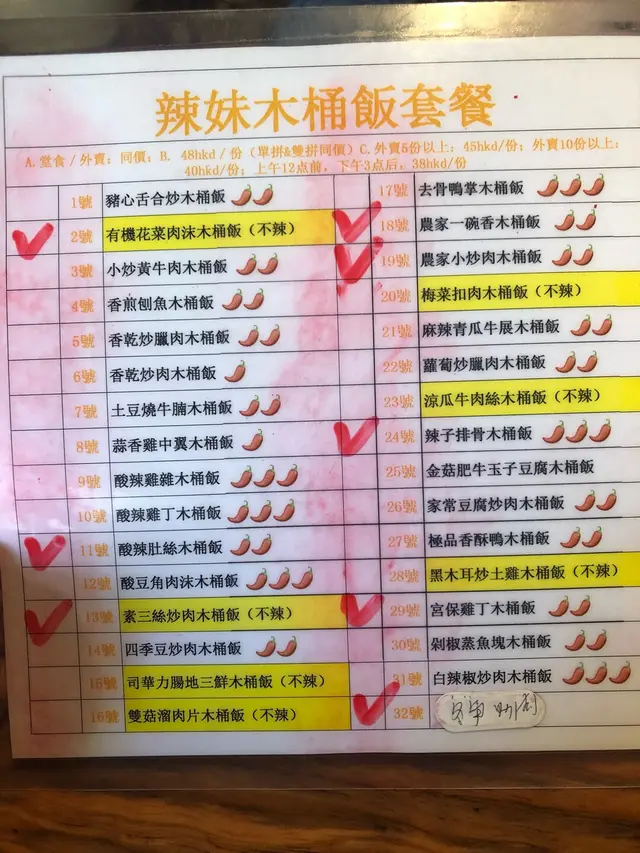 辣妹木桶飯套餐
A.堂食/外賣:同價;B. 48hkd/份(單拼&雙拼同價)C.外賣5份以上:45hkd/份;外賣10份以上:
40hkd/份;上午12点前,下午3点后,38hkd/份
1號 豬心舌合炒木桶飯
2號 有機花菜肉沫木桶飯(不辣)
3號 小炒黃牛肉木桶飯
4號 香煎刨魚木桶飯
5號 香乾炒臘肉木桶飯
6號 香乾炒肉木桶飯
7號 土豆燒牛腩木桶飯
8號 蒜香雞中翼木桶飯
9號 酸辣雞雜木桶飯
10號 酸辣雞丁木桶飯
11號 酸辣肚絲木桶飯
12號 酸豆角肉沫木桶飯
13號 素三絲炒肉木桶飯(不辣)
14號 四季豆炒肉木桶飯
15號 司華力腸地三鮮木桶飯(不辣)
16號 雙菇溜肉片木桶飯(不辣)
17號 去骨鴨掌木桶飯
18號 農家一碗香木桶飯
19號 農家小炒肉木桶飯
20號 梅菜扣肉木桶飯(不辣)
21號 麻辣青瓜牛展木桶飯
22號 蘿蔔炒臘肉木桶飯
23號 涼瓜牛肉絲木桶飯(不辣)
24號 辣子排骨木桶飯
25號 金菇肥牛玉子豆腐木桶飯
26號 家常豆腐炒肉木桶飯
27號 極品香酥鴨木桶飯
28號 黑木耳炒土雞木桶飯(不辣)
29號 宮保雞丁木桶飯
30號 剁椒蒸魚塊木桶飯
31號 白辣椒炒肉木桶飯
32號